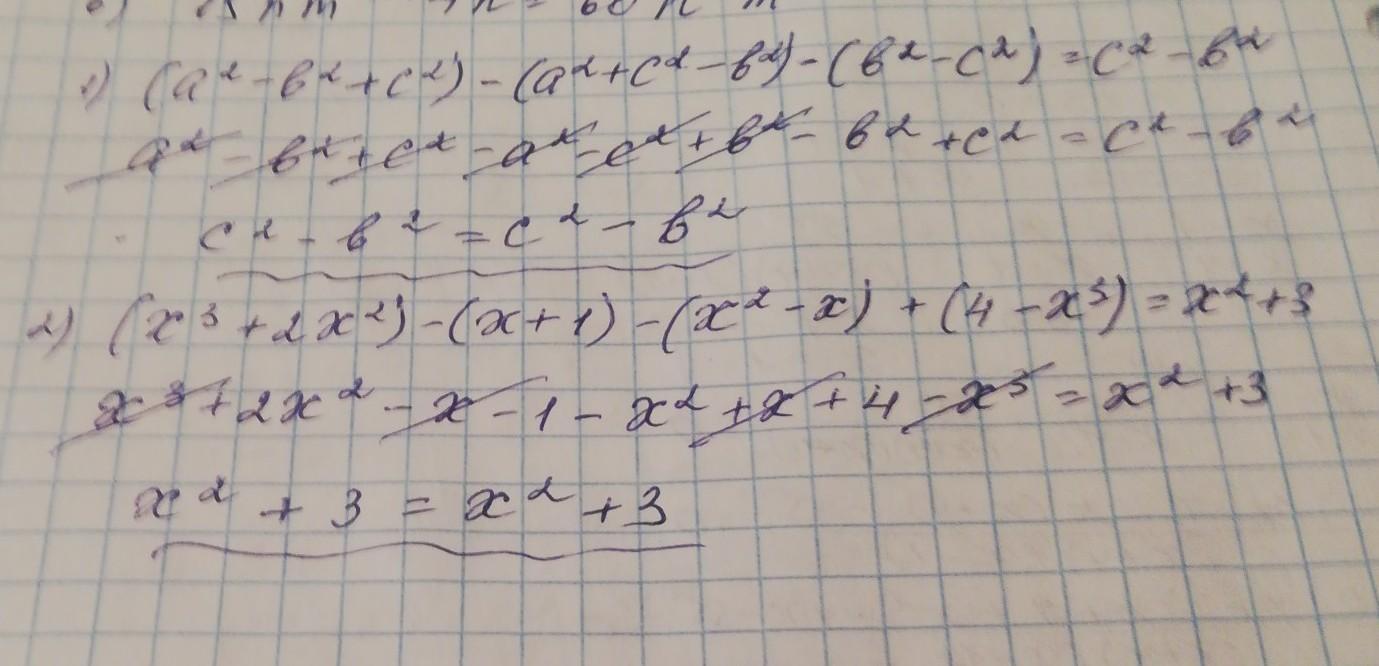 1) (a² - в² + c²) - (a² + c² - в²) - (в² - c²) = c² - в²
a² - в² + c² - a² - c² + в² - в² + c² = c² - в²
c² - в² = c² - в²
2) (x³ + 2x²) - (x + 1) - (x² - x) + (4 - x³) = x² + 3
x³ + 2x² - x - 1 - x² + x + 4 - x³ = x² + 3
x² + 3 = x² + 3